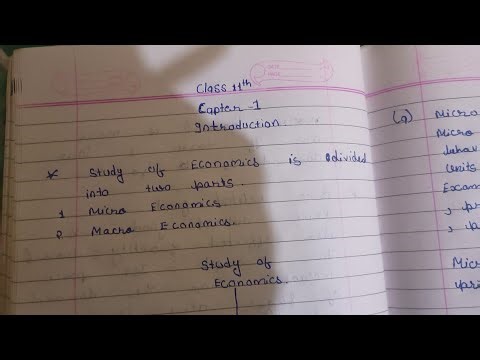 Class 11th
Capter-1
Introduction
* Study of Economics is divided
into two parts.
1 Micro Economics.
2 Macro Economics.
Study of
Economics.
(a) Micro
Micro
Units